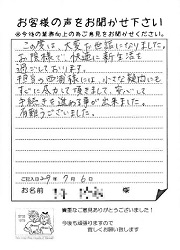 お客様の声をお聞かせ下さい
※今後の業務向上の為ご意見をお聞かせください。
この度は、大変お世話になりました。
お陰様で、快適に新生活を
過ごしております。
担当の西湖様には、小さな疑問にも
すぐに応えて頂きまして、安心して
手続きを進める事が出来ました。
有難うございました。
ご記入日29年7月6日
お名前 様
貴重なご意見ありがとうございました！
今後も頑張りますので
宜しくお願い致します